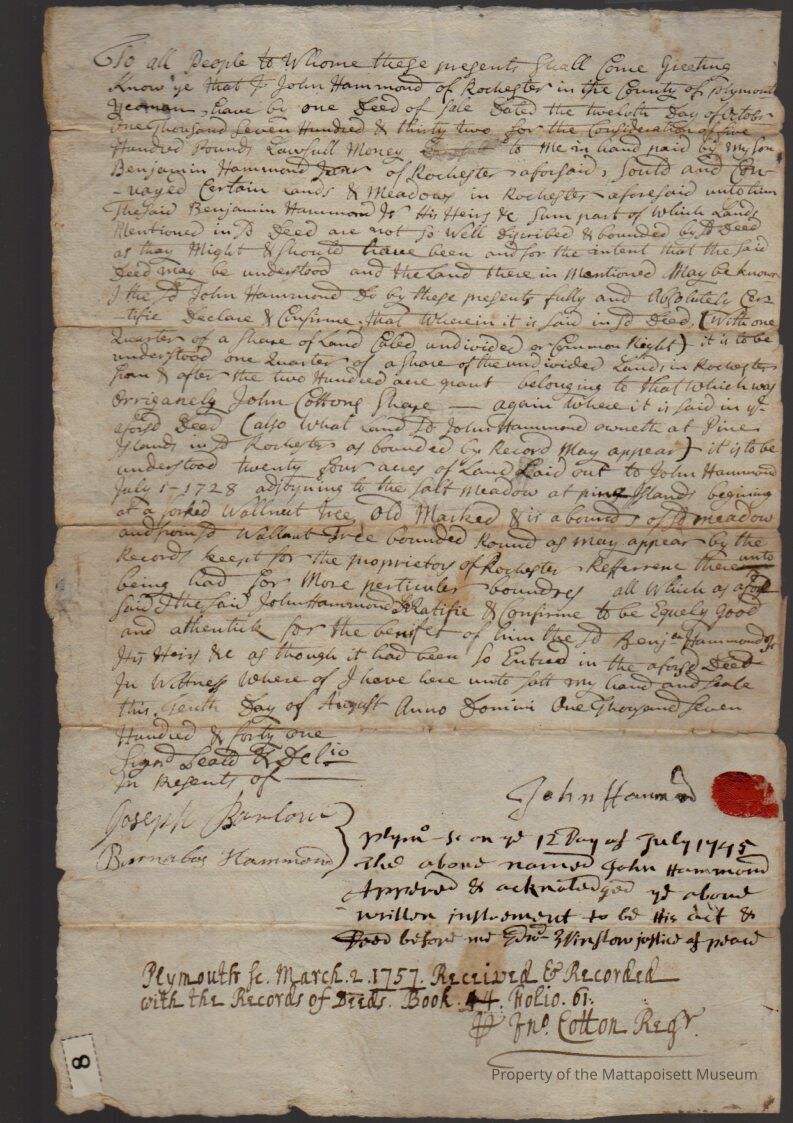 To all People to Whome these presents Shall Come Greeting
Know ye that I John Hammond of Rochester in the County of Plymouth
Yeoman, have by one Deed of Sale Dated the twelvth Day of Octobr
One Thousand Seven Hundred & thirty two for the Consideration of five
Hundred Pounds Lawfull Money to Me in hand paid by my Son
Benjamin Hammond Junr of Rochester aforsaid, Sould and Con-
-vayed Certain Lands & Meadows in Rochester aforesaid unto him
The said Benjamin Hammond Jr His Heirs &c Sum part of Which Lands
Mentioned in sd Deed are not So Well Discribed & bounded by sd Deed
as they Might & Should have been and for the intent that the Said
Deed may be understood and the Land there in Mentioned May be known
I the sd John Hammond Do by these presents fully and Absolutely Cer-
-tifie Declare & Confirme, that Wherein it is Said in sd Deed, (With one
Quarter of a Share of Land Caled undivided or Common Right) it is to be
understood one Quarter of a Share of the undivided Lands in Rochester
from & after the two Hundred acre grant belonging to that Which was
Orriganely John Cottons Share — again Where it is said in ye
aforsd Deed (also What Land sd John Hammond owneth at Pine
Islands in sd Rochester as bounded by Record May appear) it is to be
understood twenty four acres of Land Laid out to John Hammond
July 1-1728 adjoyning to the Salt Meadow at pine Islands begining
at a forked Wallnut tree, Old Marked & is a bound of sd meadow
and from sd Wallnut Tree bounded Round as may appear by the
Records keept for the proprietors of Rochester Referrence there unto
being had for More perticuler boundres all Which as afore
Said I the Said John Hammond do Ratifie & Confirme to be Equely good
and athentick for the benifet of him the sd Benjn Hammond Jr
His Heirs &c as though it had been So Entred in the aforsd Deed
In Wittness Where of I have here unto Sett my hand and Seale
this tenth Day of August Anno Domini One Thousand Seven
Hundred & forty one
Signd Seald & Delio
In Presents of
John Hammond
Joseph Barlow
Barnabas Hammond
Plymo Sc on ye 12 Day of July 1745
The above named John Hammond
Appered & acknoledged ye above
written instrement to be His act &
Deed before me Edwd Winslow justice of peace
Plymouth Sc. March. 2. 1757. Received & Recorded
with the Records of Deeds. Book. 44. Folio. 61.
Jno. Cotton Regr.
8
Property of the Mattapoisett Museum